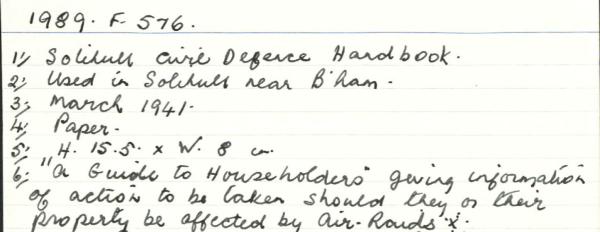 1989. F. 576.
1; Solihull Civil Defence Handbook.
2; Used in Solihull near B'ham.
3; March 1941.
4; Paper.
5; H. 15.5. x W. 8 cm.
6; "A Guide to Householders" giving information
of action to be taken should they or their
property be affected by Air-Raids